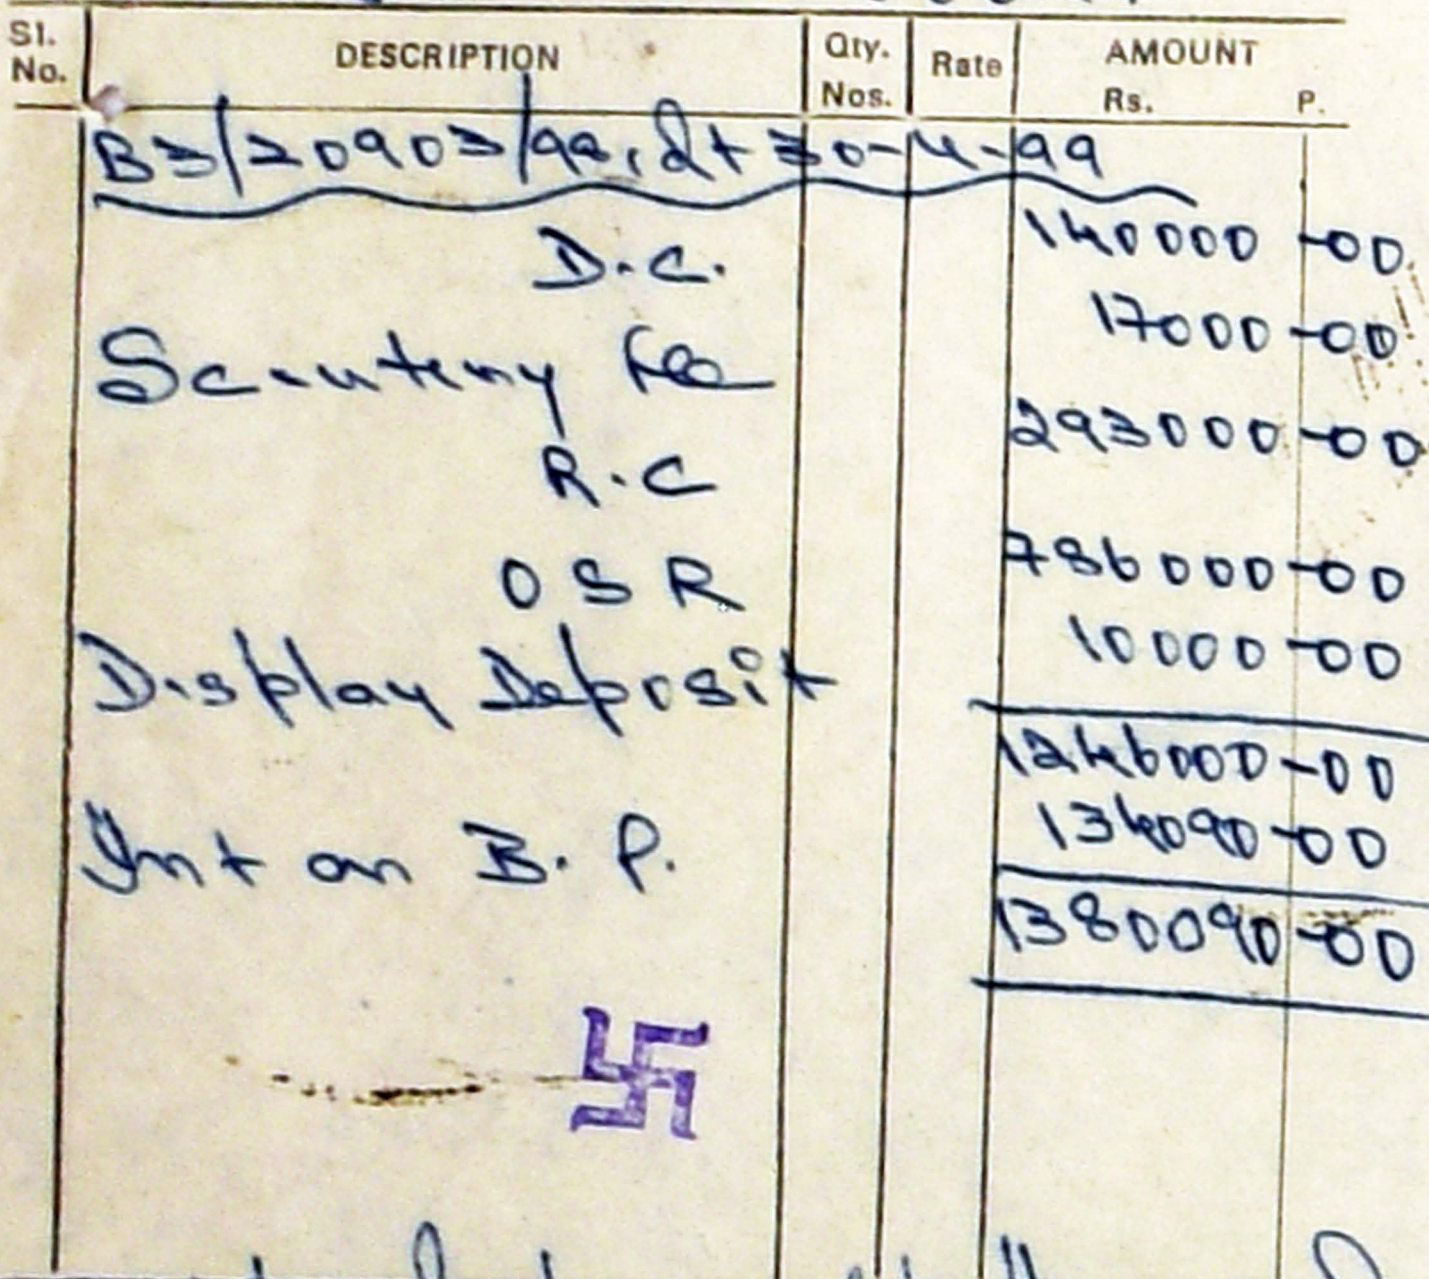 Sl. No. DESCRIPTION Qty. Nos. Rate AMOUNT Rs. P.
B3/20903/99, dt 30-4-99
D.C. 140000-00
Scrutiny Fee 17000-00
R.C 293000-00
OSR 786000-00
Display Deposit 10000-00
1246000-00
Int on B.P. 134090-00
1380090-00